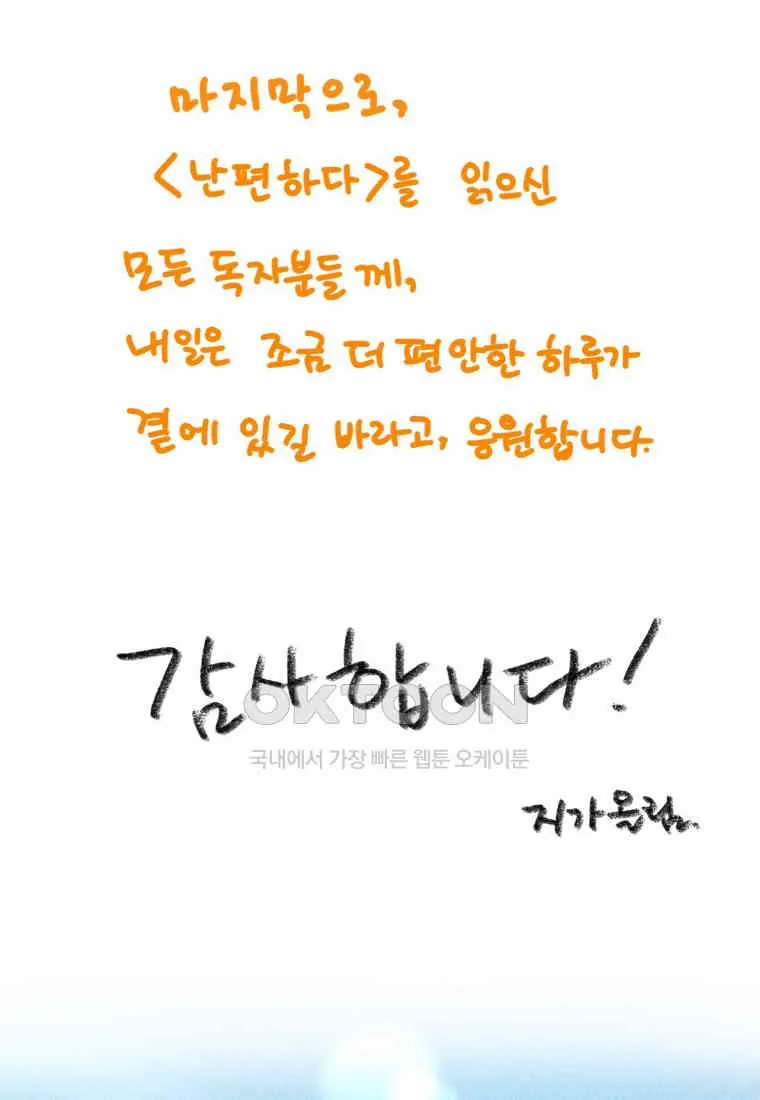 마지막으로,
<난편하다>를 읽으신
모든 독자분들께,
내일은 조금 더 편안한 하루가
곁에 있길 바라고, 응원합니다.
감사합니다!
OKTOON
국내에서 가장 빠른 웹툰 오케이툰
지가 올림.